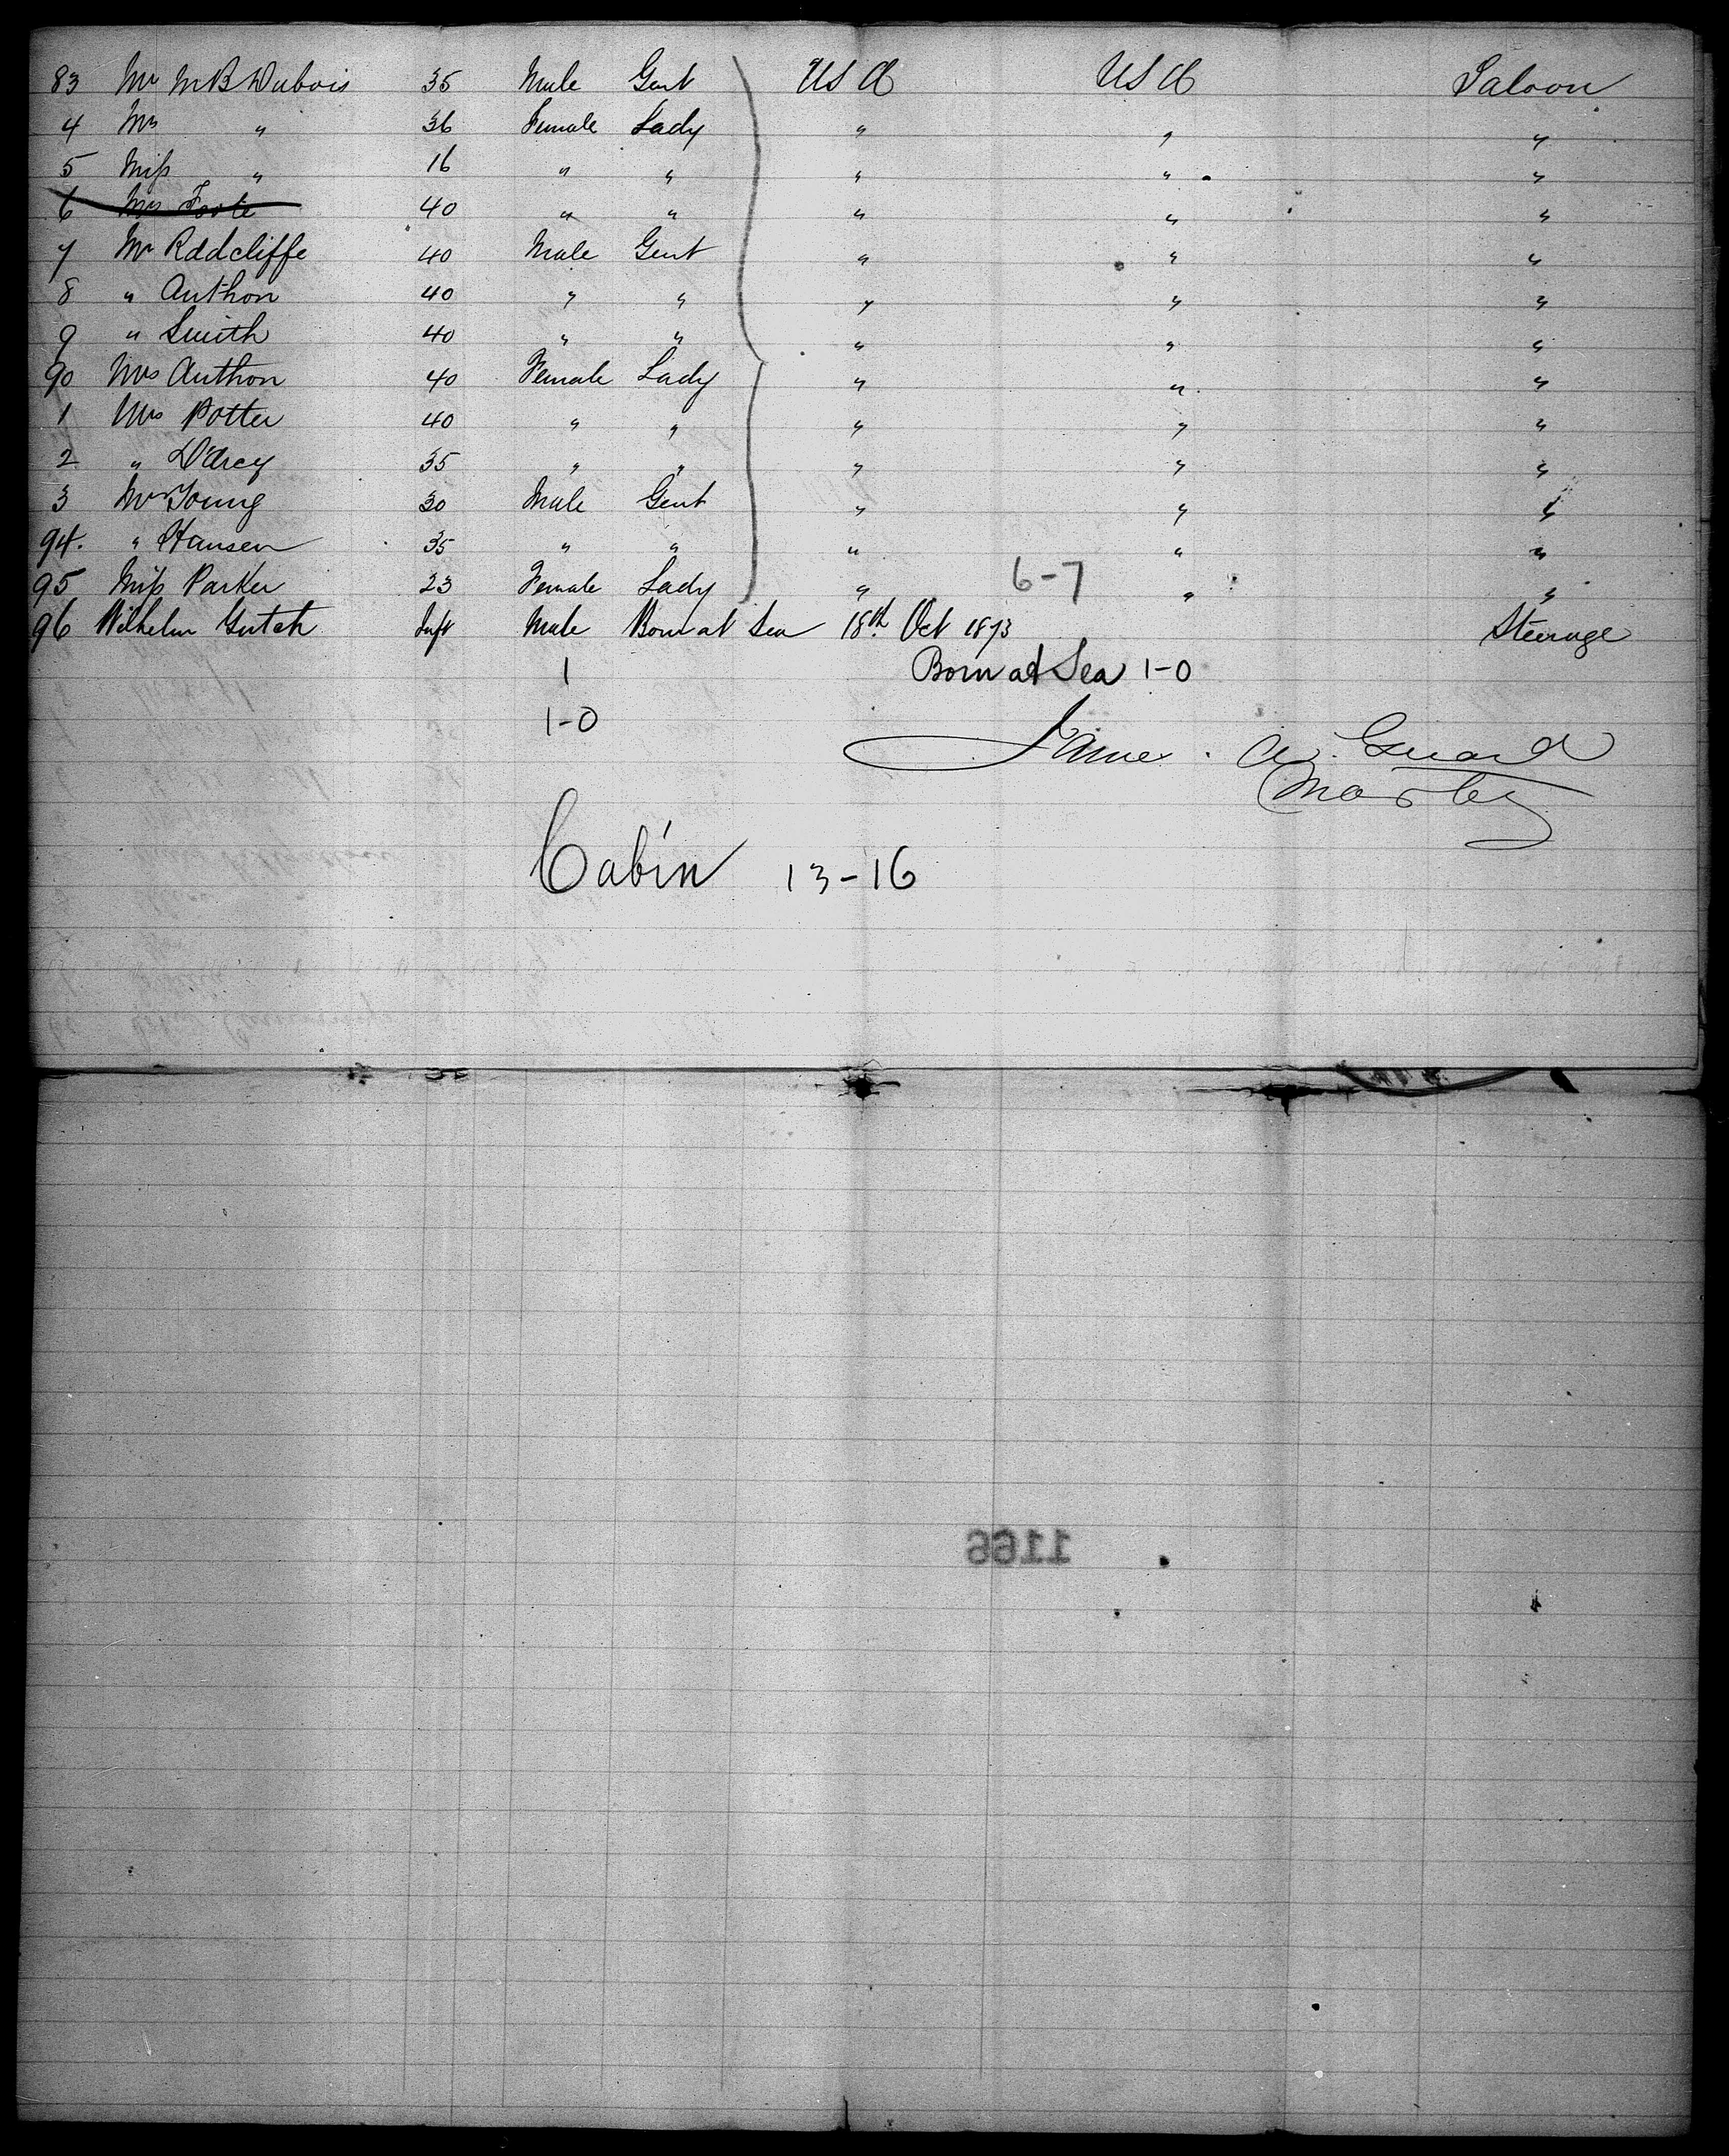 83 Mr M B Dubois 35 Male Gent USA USA Saloon
4 Mrs " 36 Female Lady " " "
5 Miss " 16 " " " " "
6 Mrs Foote 40 " " " " "
7 Mr Radcliffe 40 Male Gent " " "
8 " Anthon 40 " " " " "
9 " Smith 40 " " " " "
90 Mrs Anthon 40 Female Lady " " "
1 Mrs Potter 40 " " " " "
2 " D'Arcy 35 " " " " "
3 Mr Young 30 Male Gent " " "
94. " Hansen 35 " " " " "
95 Miss Parker 23 Female Lady " 6-7 " "
96 Wilhelm Inft Male Born at Sea 18th Oct 1873 Steerage
1 Born at Sea 1-0
1-0
James. W. Guard
Master
Cabin 13-16
1166